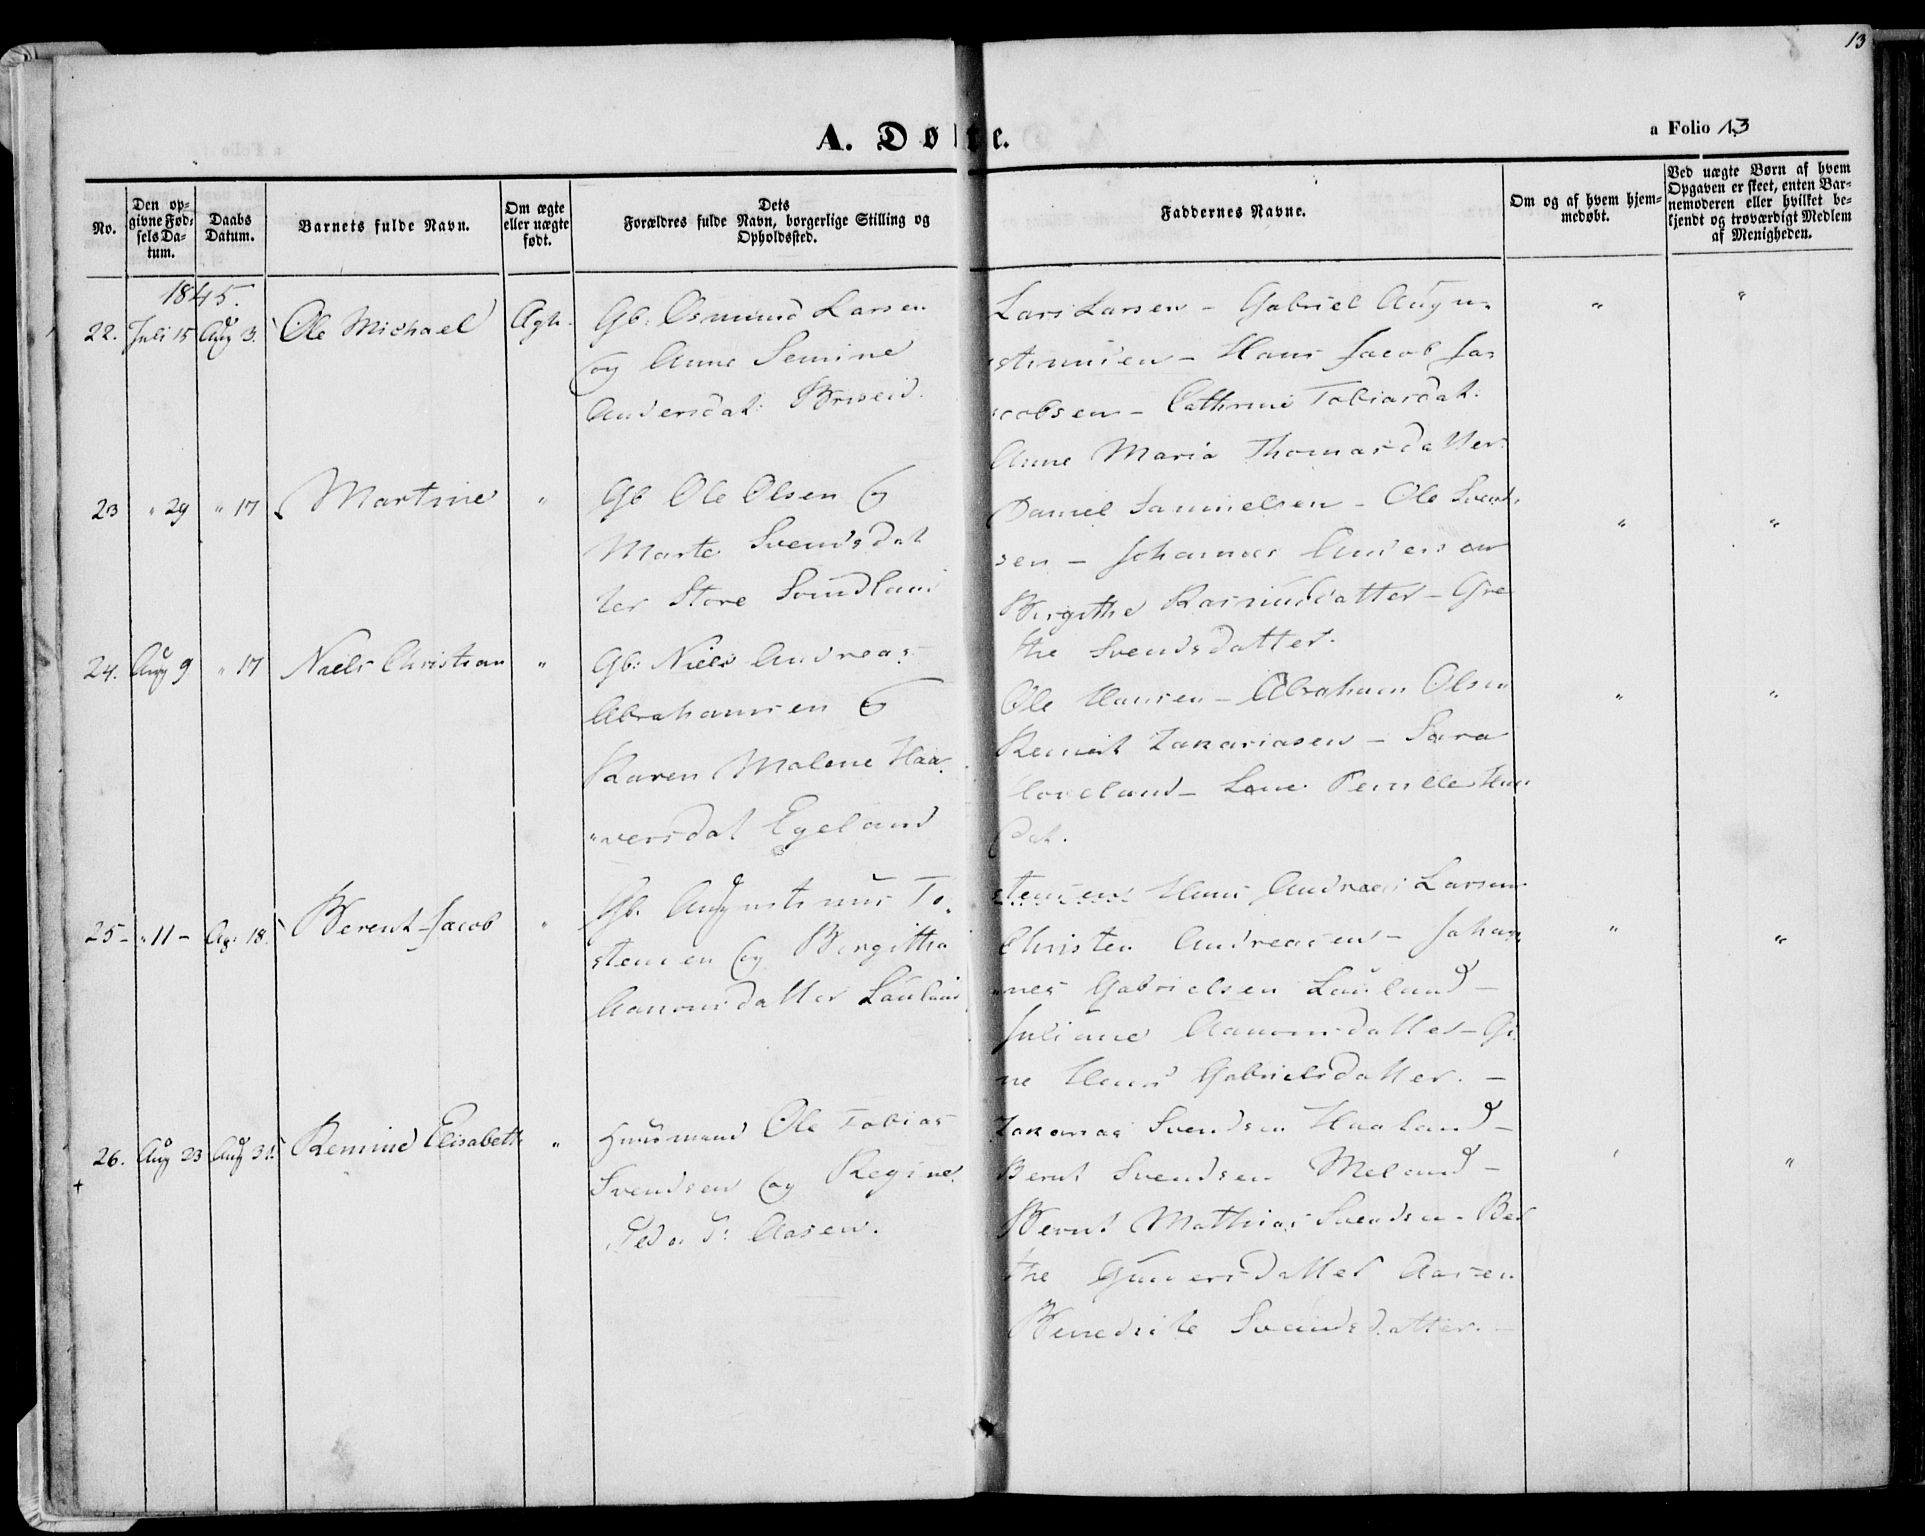 13
A. Døbte.
a Folio 13
No.
Den opgivne Fødsels Datum.
Daabs Datum.
Barnets fulde Navn.
Om ægte eller uægte født.
Dets Forældres fulde Navn, borgerlige Stilling og Opholdssted.
Faddernes Navne.
Om og af hvem hjemmedøbt.
Ved uægte Børn af hvem Opgaven er skeet, enten Barnemoderen eller hvilket bekjendt og troværdigt Medlem af Menigheden.
1845.
22. Juli 15 Aug 3. Ole Michael Ægte
Gb: Osmund Larsen
og Anne Semine
Andersdat:
Lars Larsen - Gabriel Augu-
stinusen - Hans Jacob Ja-
cobsen - Cathrine Tobiasdat.
Anne Maria Thomasdatter.
23 " 29 " 17 Martine "
Gb Ole Olsen og
Marte Svendsdat
ter Store Svindland
Daniel Samuelsen - Ole Svend-
sen - Johannes Andersen
Birgithe Rasmusdatter - Gre
the Svendsdatter.
24. Aug 9 " 17 Niels Christian "
Gb: Niels Andreas
Abrahamsen og
Karen Malene Haa-
versdat Egeland
Ole Hansen - Abraham Olsen
Zakariasen - Sara
- Lene Pernille
dat.
25 - " 11 - Ag: 18. Berent Jacob "
Gb. Augustinus To-
stensen og Birgitha
Aanonsdatter Lauland
stensen Hans Andreas Larsen
Christen Andreasen - Johan-
nes Gabrielsen Lauland -
Juliane Aanonsdatter - Gu
ne Gabrielsdatter. -
26. Aug 23 Aug 31. Remine Elisabeth "
Huusmand Ole Tobias
Svendsen og Regine
Aasen.
Zakarias Svendsen Haaland -
Bernt Svendsen Meland -
Bernt Mathias Svendsen - Ber
the Aasen
Benedicte Svendsdatter. -